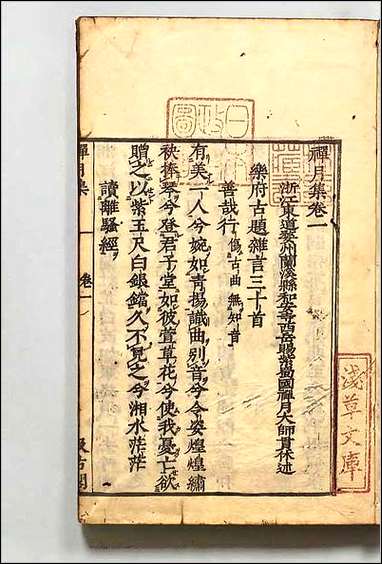 禪月集卷一
浙江東道婺州蘭溪縣和安寺西岳賜紫蜀國禪月大師貫休述
樂府古題雜言三十首
善哉行 傷古曲無知音
有美一人兮婉如青揚識曲別音兮令姿煌煌繡
袂捧琴兮登君子堂如彼萱草花兮使我憂亡欲
贈之以紫玉尺白銀鐺久不見之兮湘水茫茫
讀離騷經
禪月集
卷一
汲古閣
淺草文庫